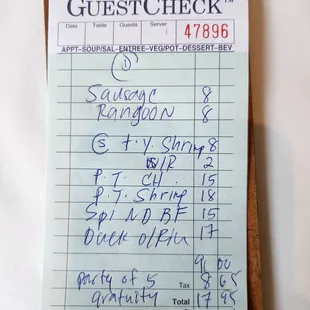 GUESTCHECK™
Date Table Guests Server 47896
APPT-SOUP/SAL-ENTREE-VEG/POT-DESSERT-BEV
D
Sausage 8
Rangoon 8
S T.Y. Shrimp 8
W/R 2
P.T. CH. 15
P.T. Shrimp 18
Spi ND BF 15
Duck o/Rice 17
91 00
party of 5 Tax 8 65
gratuity Total 17 95